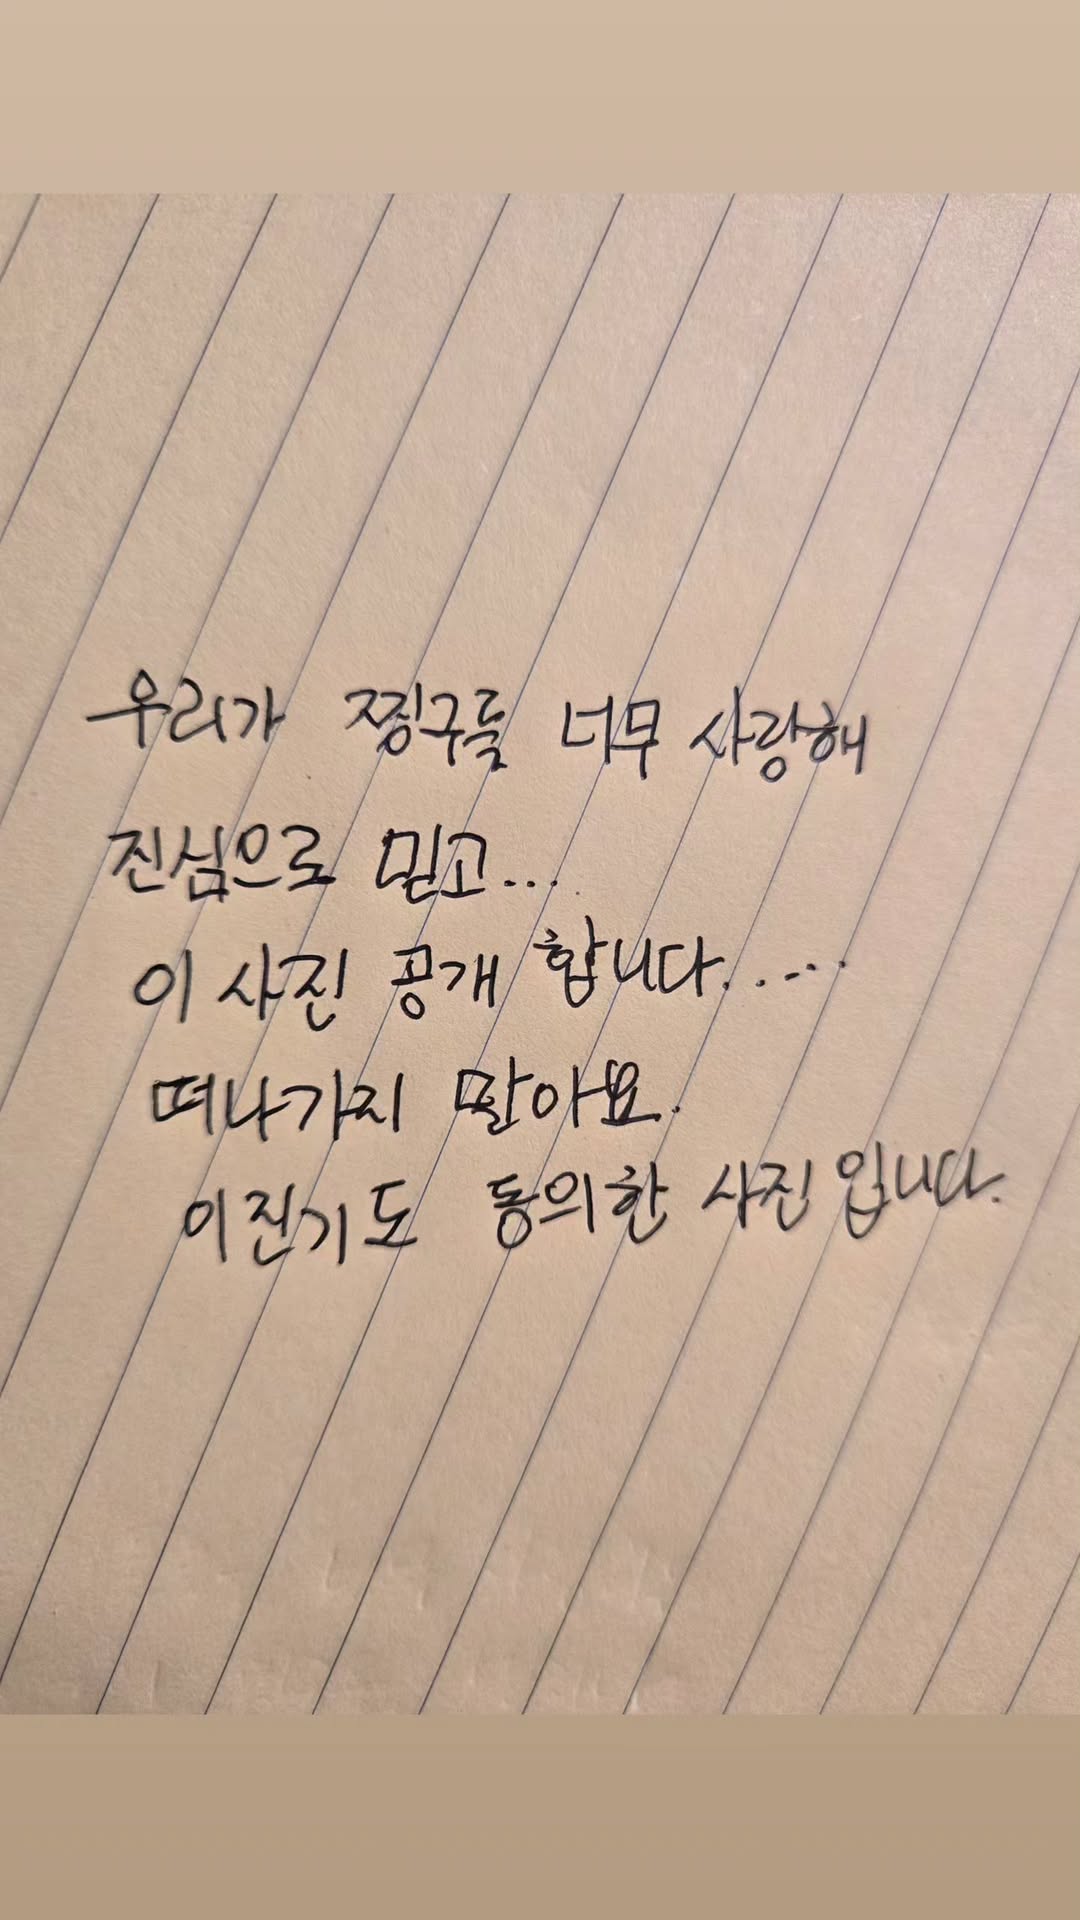 우리가 찡구들 너무 사랑해
진심으로 믿고...
이 사진 공개 합니다.....
떠나가지 말아요.
이진기도 동의한 사진입니다.